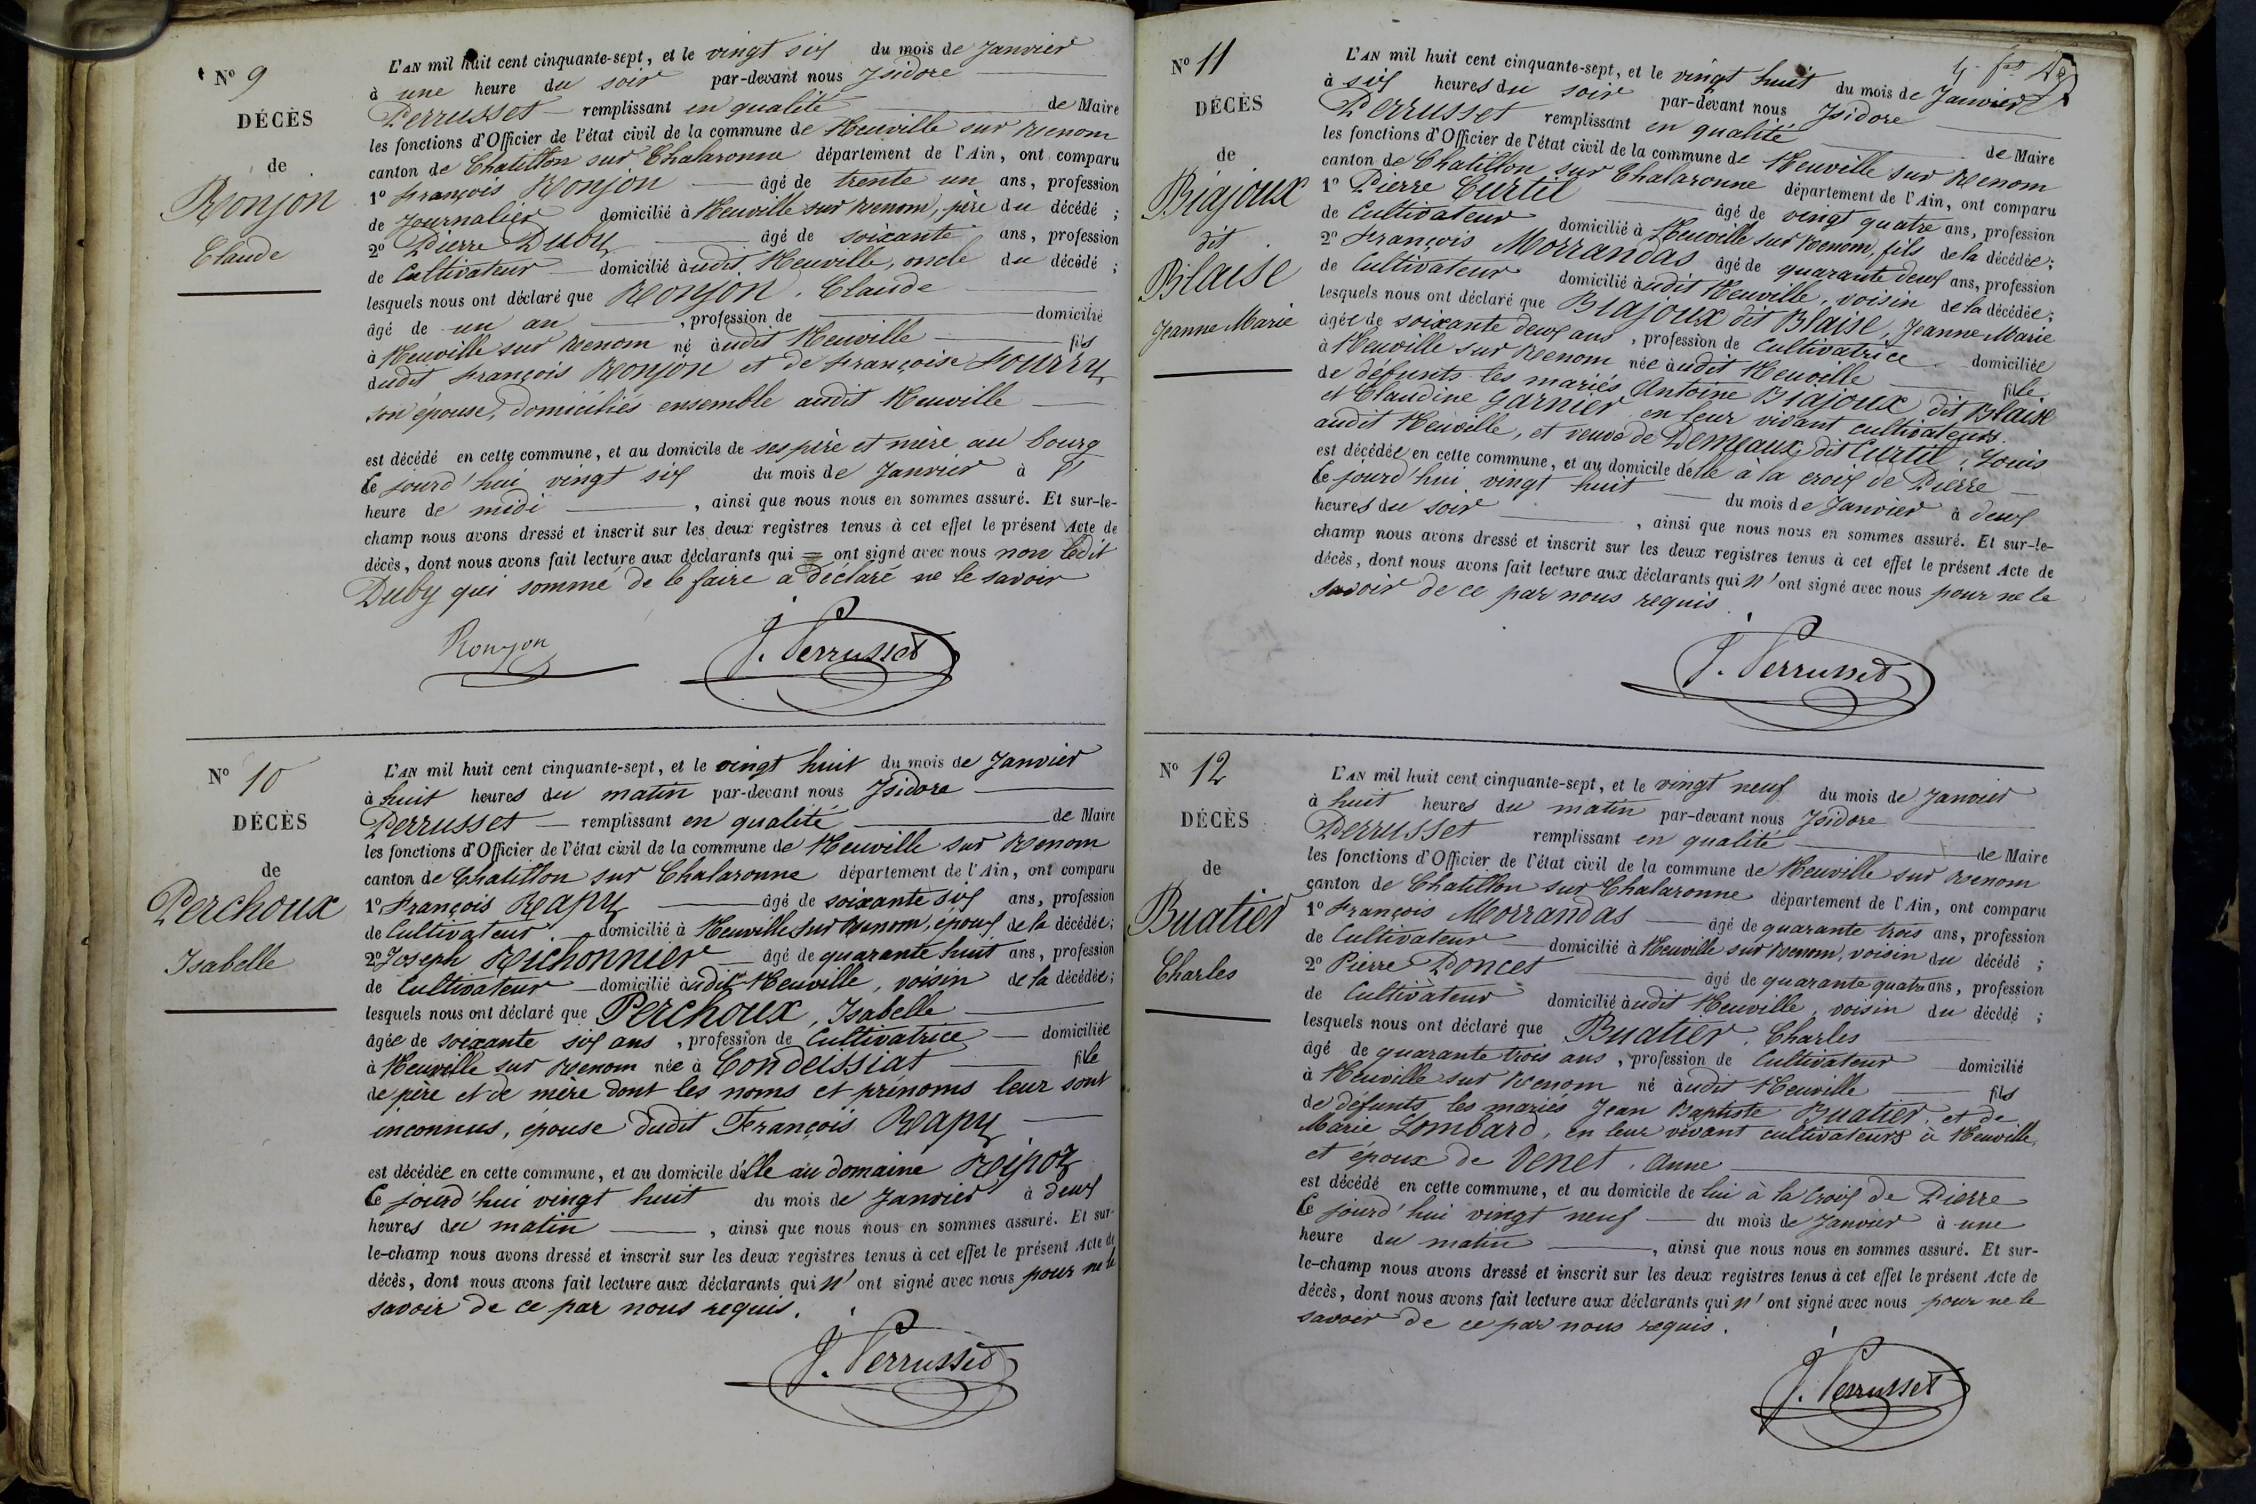 N° 9
DÉCÈS
de
Ronjon
Claude
L'AN mil huit cent cinquante-sept, et le vingt six du mois de Janvier
à une heure du soir par-devant nous Isidore
Perrusset remplissant en qualité de Maire
les fonctions d'Officier de l'état civil de la commune de Neuville sur Renom
canton de Chatillon sur Chalaronne département de l'Ain, ont comparu
1° François Ronjon âgé de trente un ans, profession
de Journalier domicilié à Neuville sur Renom, père du décédé ;
2° Pierre Duby âgé de soixante ans, profession
de Cultivateur domicilié àudit Neuville, oncle du décédé ;
lesquels nous ont déclaré que Ronjon, Claude
âgé de un an , profession de domicilié
à Neuville sur Renom né àudit Neuville fils
dudit François Ronjon et de Françoise Fourry
son épouse, domiciliés ensemble audit Neuville
est décédé en cette commune, et au domicile de ses père et mère au bourg
Ce jourd'hui vingt six du mois de Janvier à
heure de midi , ainsi que nous nous en sommes assuré. Et sur-le-
champ nous avons dressé et inscrit sur les deux registres tenus à cet effet le présent Acte de
décès, dont nous avons fait lecture aux déclarants qui ont signé avec nous non ledit
Duby qui sommé de le faire a déclaré ne le savoir
Ronjon J. Perrusset
N° 10
DÉCÈS
de
Perchoux
Isabelle
L'AN mil huit cent cinquante-sept, et le vingt huit du mois de Janvier
à huit heures du matin par-devant nous Isidore
Perrusset remplissant en qualité de Maire
les fonctions d'Officier de l'état civil de la commune de Neuville sur Renom
canton de Chatillon sur Chalaronne département de l'Ain, ont comparu
1° François Rapy âgé de soixante six ans, profession
de Cultivateur domicilié à Neuville sur Renom, époux de la décédée ;
2° Joseph Richonnier âgé de quarante huit ans, profession
de Cultivateur domicilié àudit Neuville, voisin de la décédée ;
lesquels nous ont déclaré que Perchoux, Isabelle
âgée de soixante six ans , profession de Cultivatrice domiciliée
à Neuville sur Renom née à Condeissiat fille
de père et de mère dont les noms et prénoms leur sont
inconnus, épouse dudit François Rapy
est décédée en cette commune, et au domicile d'elle au domaine Ripoz
Ce jourd'hui vingt huit du mois de Janvier à deux
heures du matin , ainsi que nous nous en sommes assuré. Et sur-
le-champ nous avons dressé et inscrit sur les deux registres tenus à cet effet le présent Acte de
décès, dont nous avons fait lecture aux déclarants qui n'ont signé avec nous pour ne le
savoir de ce par nous requis.
J. Perrusset
N° 11
DÉCÈS
de
Biajoux
dit
Blaise
Jeanne Marie
L'AN mil huit cent cinquante-sept, et le vingt huit du mois de Janvier
à six heures du soir par-devant nous Isidore
Perrusset remplissant en qualité de Maire
les fonctions d'Officier de l'état civil de la commune de Neuville sur Renom
canton de Chatillon sur Chalaronne département de l'Ain, ont comparu
1° Pierre Curtil âgé de vingt quatre ans, profession
de Cultivateur domicilié à Neuville sur Renom, fils de la décédée ;
2° François Morrandas âgé de quarante deux ans, profession
de Cultivateur domicilié àudit Neuville, voisin de la décédée ;
lesquels nous ont déclaré que Biajoux dit Blaise, Jeanne Marie
âgée de soixante deux ans , profession de Cultivatrice domiciliée
à Neuville sur Renom née àudit Neuville fille
de défunts les mariés Antoine Biajoux dit Blaise
et Claudine Garnier en leur vivant cultivateurs
audit Neuville, et veuve de Demeaux dit Curtil, Louis
est décédée en cette commune, et au domicile d'elle à la croix de Pierre
Ce jourd'hui vingt huit du mois de Janvier à deux
heures du soir , ainsi que nous nous en sommes assuré. Et sur-le-
champ nous avons dressé et inscrit sur les deux registres tenus à cet effet le présent Acte de
décès, dont nous avons fait lecture aux déclarants qui n'ont signé avec nous pour ne le
savoir de ce par nous requis.
J. Perrusset
N° 12
DÉCÈS
de
Buatier
Charles
L'AN mil huit cent cinquante-sept, et le vingt neuf du mois de Janvier
à huit heures du matin par-devant nous Isidore
Perrusset remplissant en qualité de Maire
les fonctions d'Officier de l'état civil de la commune de Neuville sur Renom
canton de Chatillon sur Chalaronne département de l'Ain, ont comparu
1° François Morrandas âgé de quarante trois ans, profession
de Cultivateur domicilié à Neuville sur Renom, voisin du décédé ;
2° Pierre Poncet âgé de quarante quatre ans, profession
de Cultivateur domicilié àudit Neuville, voisin du décédé ;
lesquels nous ont déclaré que Buatier, Charles
âgé de quarante trois ans , profession de Cultivateur domicilié
à Neuville sur Renom né àudit Neuville fils
de défunts les mariés Jean Baptiste Buatier et de
Marie Lombard, en leur vivant cultivateurs à Neuville,
et époux de Venet, Anne
est décédé en cette commune, et au domicile de lui à la Croix de Pierre
Ce jourd'hui vingt neuf du mois de Janvier à une
heure du matin , ainsi que nous nous en sommes assuré. Et sur-
le-champ nous avons dressé et inscrit sur les deux registres tenus à cet effet le présent Acte de
décès, dont nous avons fait lecture aux déclarants qui n'ont signé avec nous pour ne le
savoir de ce par nous requis.
J. Perrusset